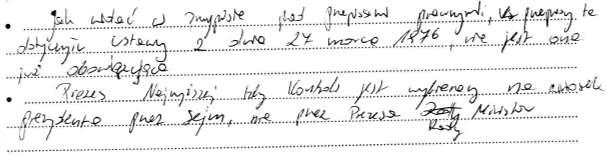 • Jak widać w przypisie pod przepisami prawnymi, przepisy te
dotyczyły ustawy z dnia 27 marca 1976, nie jest ona
już obowiązująca
• Prezes Najwyższej Izby Kontroli jest wybierany na wniosek
prezydenta przez Sejm, nie przez Prezesa Rady Ministrów